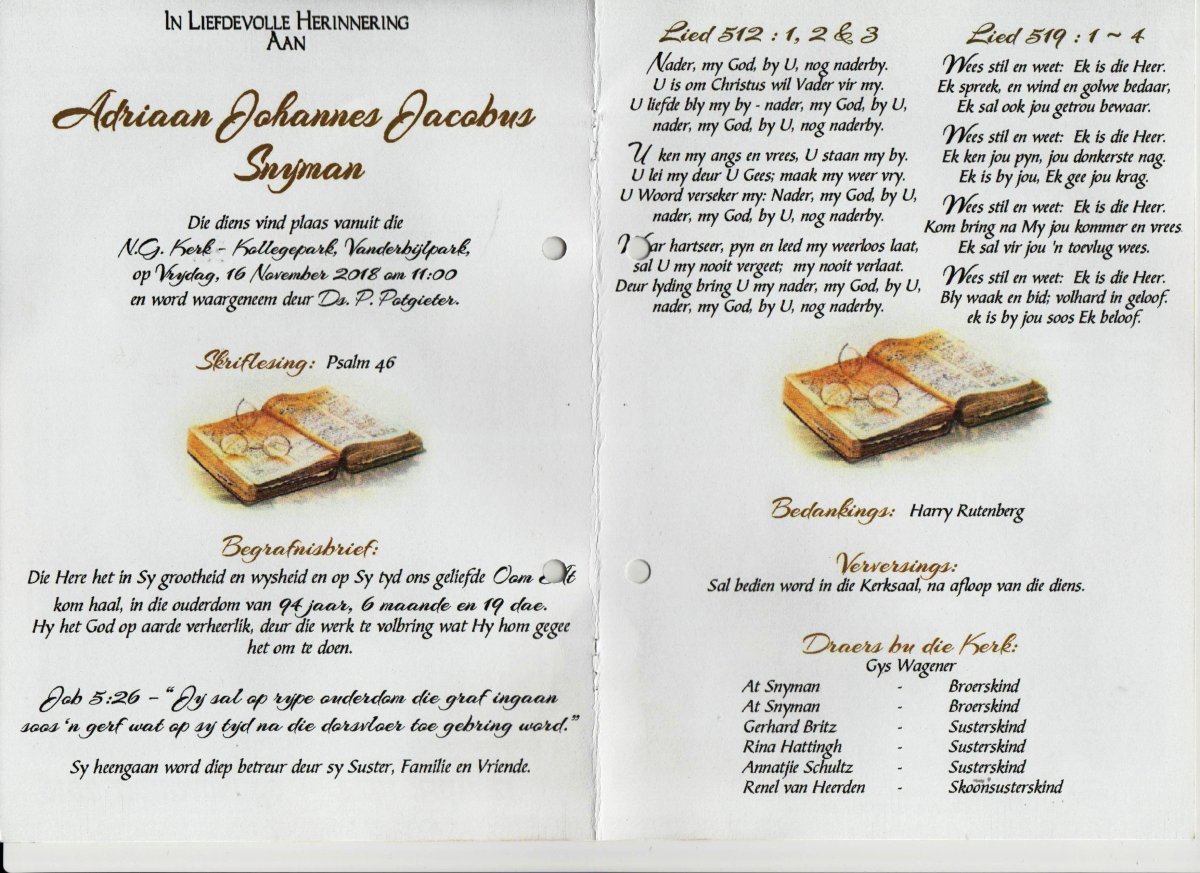 In Liefdevolle Herinnering
Aan
Adriaan Johannes Jacobus
Snyman
Die diens vind plaas vanuit die
N.G. Kerk - Kollegepark, Vanderbijlpark,
op Vrydag, 16 November 2018 om 11:00
en word waargeneem deur Ds. P. Potgieter.
Skriflesing: Psalm 46
Begrafnisbrief:
Die Here het in Sy grootheid en wysheid en op Sy tyd ons geliefde Oom
kom haal, in die ouderdom van 94 jaar, 6 maande en 19 dae.
Hy het God op aarde verheerlik, deur die werk te volbring wat Hy hom gegee
het om te doen.
Job 5:26 – “Jy sal op rype ouderdom die graf ingaan
soos ‘n gerf wat op sy tyd na die dorsvloer toe gebring word.”
Sy heengaan word diep betreur deur sy Suster, Familie en Vriende.
Lied 512 : 1, 2 & 3
Nader, my God, by U, nog naderby.
U is om Christus wil Vader vir my.
U liefde bly my by - nader, my God, by U,
nader, my God, by U, nog naderby.
U ken my angs en vrees, U staan my by.
U lei my deur U Gees; maak my weer vry.
U Woord verseker my: Nader, my God, by U,
nader, my God, by U, nog naderby.
hartseer, pyn en leed my weerloos laat,
sal U my nooit vergeet; my nooit verlaat.
Deur lyding bring U my nader, my God, by U,
nader, my God, by U, nog naderby.
Lied 519 : 1 ~ 4
Wees stil en weet: Ek is die Heer.
Ek spreek, en wind en golwe bedaar,
Ek sal ook jou getrou bewaar.
Wees stil en weet: Ek is die Heer.
Ek ken jou pyn, jou donkerste nag.
Ek is by jou, Ek gee jou krag.
Wees stil en weet: Ek is die Heer.
Kom bring na My jou kommer en vrees
Ek sal vir jou 'n toevlug wees.
Wees stil en weet: Ek is die Heer.
Bly waak en bid; volhard in geloof.
ek is by jou soos Ek beloof.
Bedankings: Harry Rutenberg
Verversings:
Sal bedien word in die Kerksaal, na afloop van die diens.
Draers by die Kerk:
Gys Wagener
At Snyman - Broerskind
At Snyman - Broerskind
Gerhard Britz - Susterskind
Rina Hattingh - Susterskind
Annatjie Schultz - Susterskind
Renel van Heerden - Skoonsusterskind